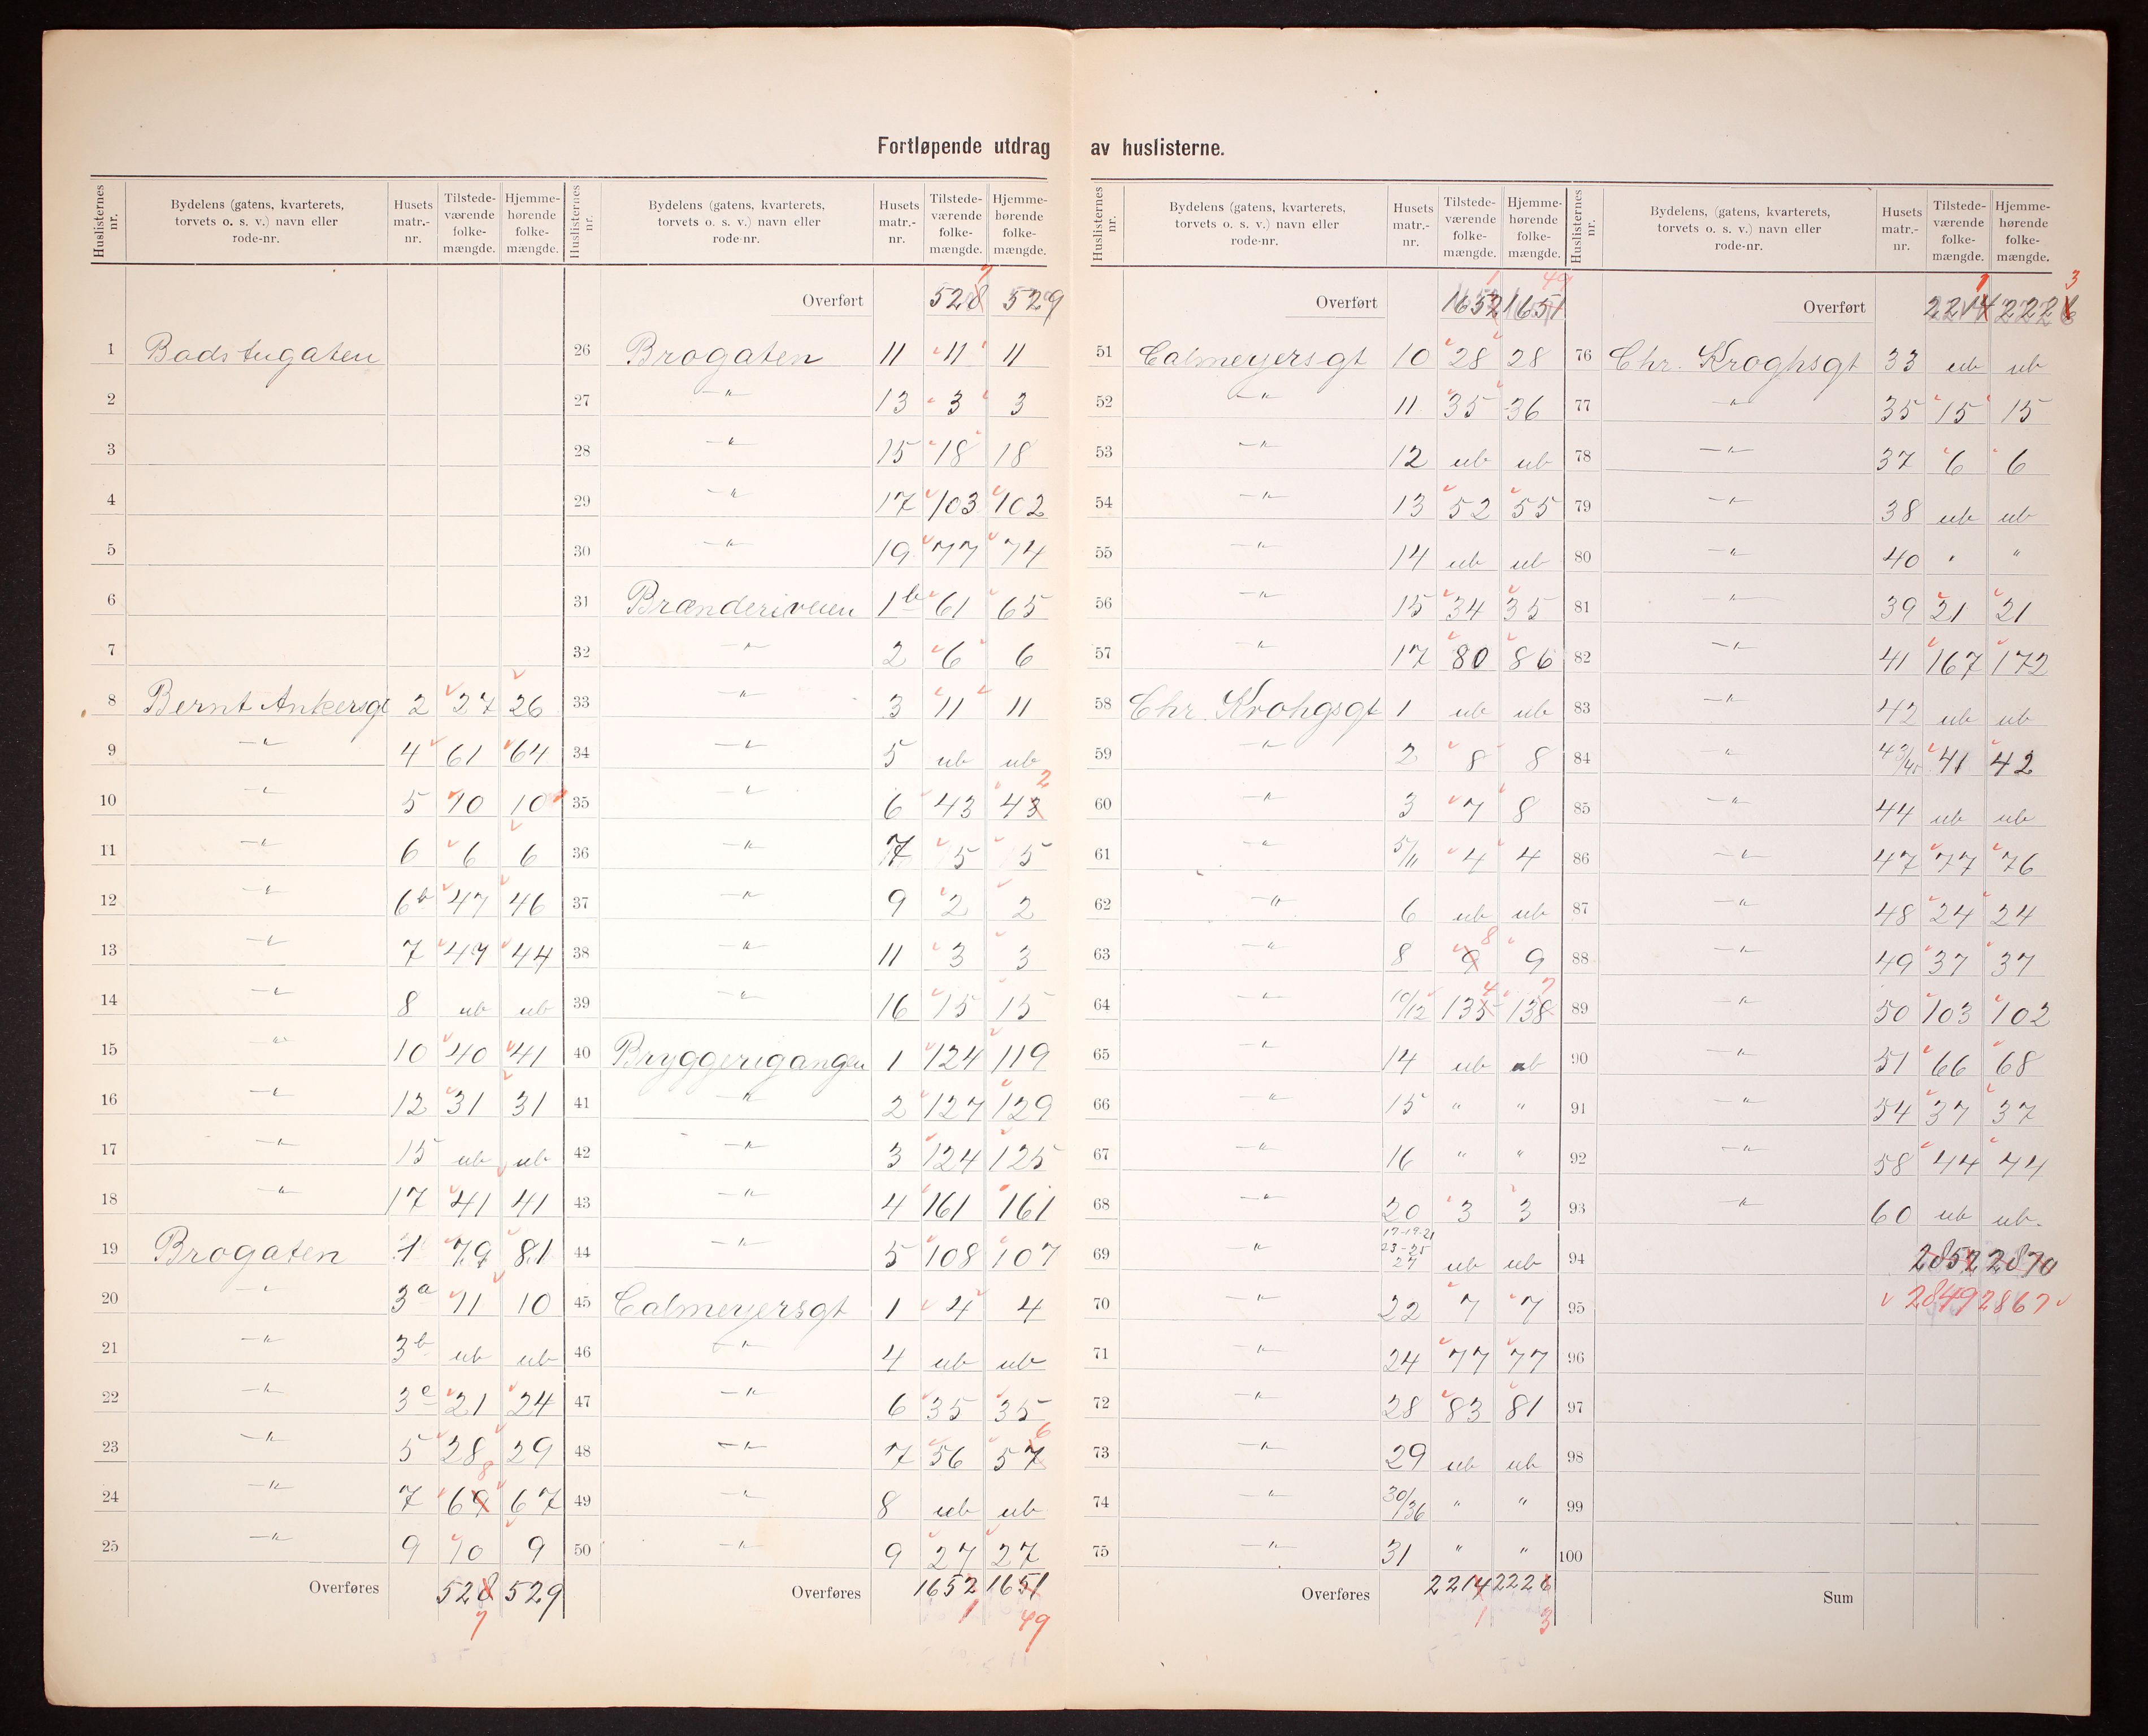 Fortløpende utdrag av huslisterne.
Huslisternes nr. | Bydelens (gatens, kvarterets, torvets o. s. v.) navn eller rode-nr. | Husets matr.-nr. | Tilstede-værende folke-mængde. | Hjemme-hørende folke-mængde.
1 Badstugaten
2
3
4
5
6
7
8 Bernt Ankersgt 2 27 26
9 —"— 4 61 64
10 —"— 5 10 10
11 —"— 6 6 6
12 —"— 6b 47 46
13 —"— 7 47 44
14 —"— 8 ub ub
15 —"— 10 40 41
16 —"— 12 31 31
17 —"— 15 ub ub
18 —"— 17 41 41
19 Brogaten 1 79 81
20 —"— 3a 11 10
21 —"— 3b ub ub
22 —"— 3c 21 24
23 —"— 5 28 29
24 —"— 7 69 8 67
25 —"— 9 10 9
Overføres 528 529
7
Huslisternes nr. | Bydelens (gatens, kvarterets, torvets o. s. v.) navn eller rode-nr. | Husets matr.-nr. | Tilstede-værende folke-mængde. | Hjemme-hørende folke-mængde.
Overført 528 7 529
26 Brogaten 11 11 11
27 —"— 13 3 3
28 —"— 15 18 18
29 —"— 17 103 102
30 —"— 19 77 74
31 Brænderiveien 1b 61 65
32 —"— 2 6 6
33 —"— 3 11 11
34 —"— 5 ub ub
35 —"— 6 43 43 2
36 —"— 7 5 5
37 —"— 9 2 2
38 —"— 11 3 3
39 —"— 16 15 15
40 Bryggerigangen 1 124 119
41 —"— 2 127 129
42 —"— 3 124 125
43 —"— 4 161 161
44 —"— 5 108 107
45 Calmeyersgt 1 4 4
46 —"— 4 ub ub
47 —"— 6 35 35
48 —"— 7 56 57 6
49 —"— 8 ub ub
50 —"— 9 27 27
Overføres 1652 1651
1 49
Huslisternes nr. | Bydelens (gatens, kvarterets, torvets o. s. v.) navn eller rode-nr. | Husets matr.-nr. | Tilstede-værende folke-mængde. | Hjemme-hørende folke-mængde.
Overført 1652 1 1651 49
51 Calmeyersgt 10 28 28
52 —"— 11 35 36
53 —"— 12 ub ub
54 —"— 13 52 55
55 —"— 14 ub ub
56 —"— 15 34 35
57 —"— 17 80 86
58 Chr. Krohgsgt 1 ub ub
59 —"— 2 8 8
60 —"— 3 7 8
61 —"— 5/11 4 4
62 —"— 6 ub ub
63 —"— 8 9 8 9
64 —"— 10/12 135 4 138 7
65 —"— 14 ub ub
66 —"— 15 " "
67 —"— 16 " "
68 —"— 20 3 3
69 —"— 17-19-21 23-25 27 ub ub
70 —"— 22 7 7
71 —"— 24 77 77
72 —"— 28 83 81
73 —"— 29 ub ub
74 —"— 30/36 " "
75 —"— 31 " "
Overføres 2214 2226
1 3
Huslisternes nr. | Bydelens, (gatens, kvarterets, torvets o. s. v.) navn eller rode-nr. | Husets matr.-nr. | Tilstede-værende folke-mængde. | Hjemme-hørende folke-mængde.
Overført 2214 1 2226 3
76 Chr. Kroghsgt 33 ub ub
77 —"— 35 15 15
78 —"— 37 6 6
79 —"— 38 ub ub
80 —"— 40 " "
81 —"— 39 21 21
82 —"— 41 167 172
83 —"— 42 ub ub
84 —"— 43/45 41 42
85 —"— 44 ub ub
86 —"— 47 77 76
87 —"— 48 24 24
88 —"— 49 37 37
89 —"— 50 103 102
90 —"— 51 66 68
91 —"— 54 37 37
92 —"— 58 44 44
93 —"— 60 ub ub.
94 2852 2870
95 2849 2867
96
97
98
99
100
Sum